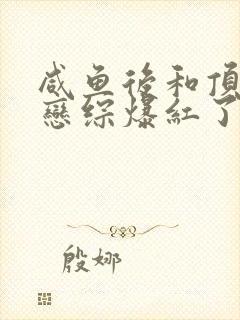 咸鱼後和顶
戀综爆红了
殷娜